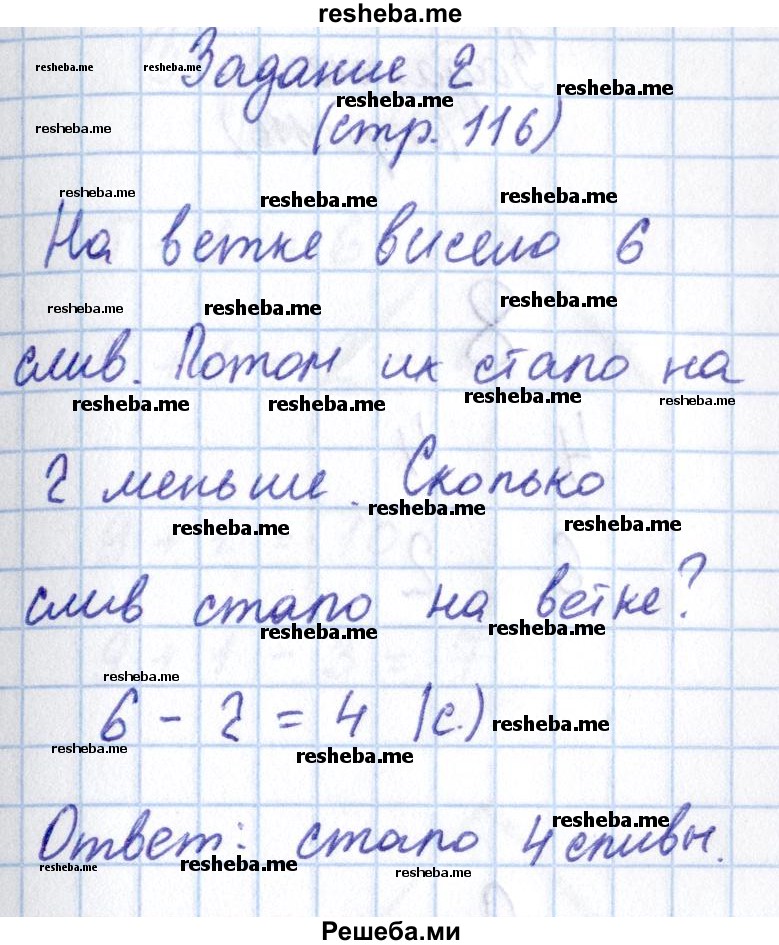 resheba.me
resheba.me resheba.me
Задание 2
resheba.me
resheba.me
resheba.me
(стр. 116)
resheba.me
resheba.me resheba.me
На ветке висело 6
resheba.me resheba.me resheba.me
слив. Потом их стало на
resheba.me resheba.me resheba.me resheba.me
2 меньше. Сколько
resheba.me resheba.me resheba.me
слив стало на ветке?
resheba.me resheba.me
resheba.me
6 - 2 = 4 (с.) resheba.me
resheba.me resheba.me
resheba.me
Ответ: стало 4 сливы.
resheba.me resheba.me resheba.me
Решеба.ми